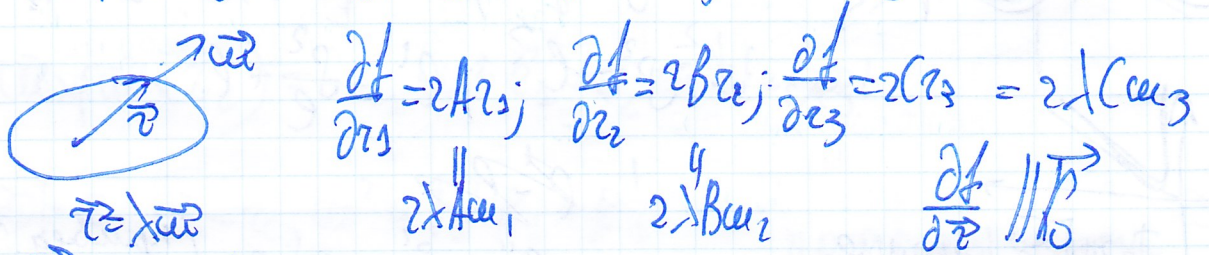 $\vec{\omega}$
$\vec{r}$
$\frac{\partial f}{\partial r_1} = 2Ar_1; \quad \frac{\partial f}{\partial r_2} = 2Br_2; \quad \frac{\partial f}{\partial r_3} = 2Cr_3 = 2\lambda C\omega_3$
$\vec{r} = \lambda\vec{\omega} \quad 2\lambda A\omega_1 \quad 2\lambda B\omega_2 \quad \frac{\partial f}{\partial \vec{r}} \parallel \vec{K}_0$